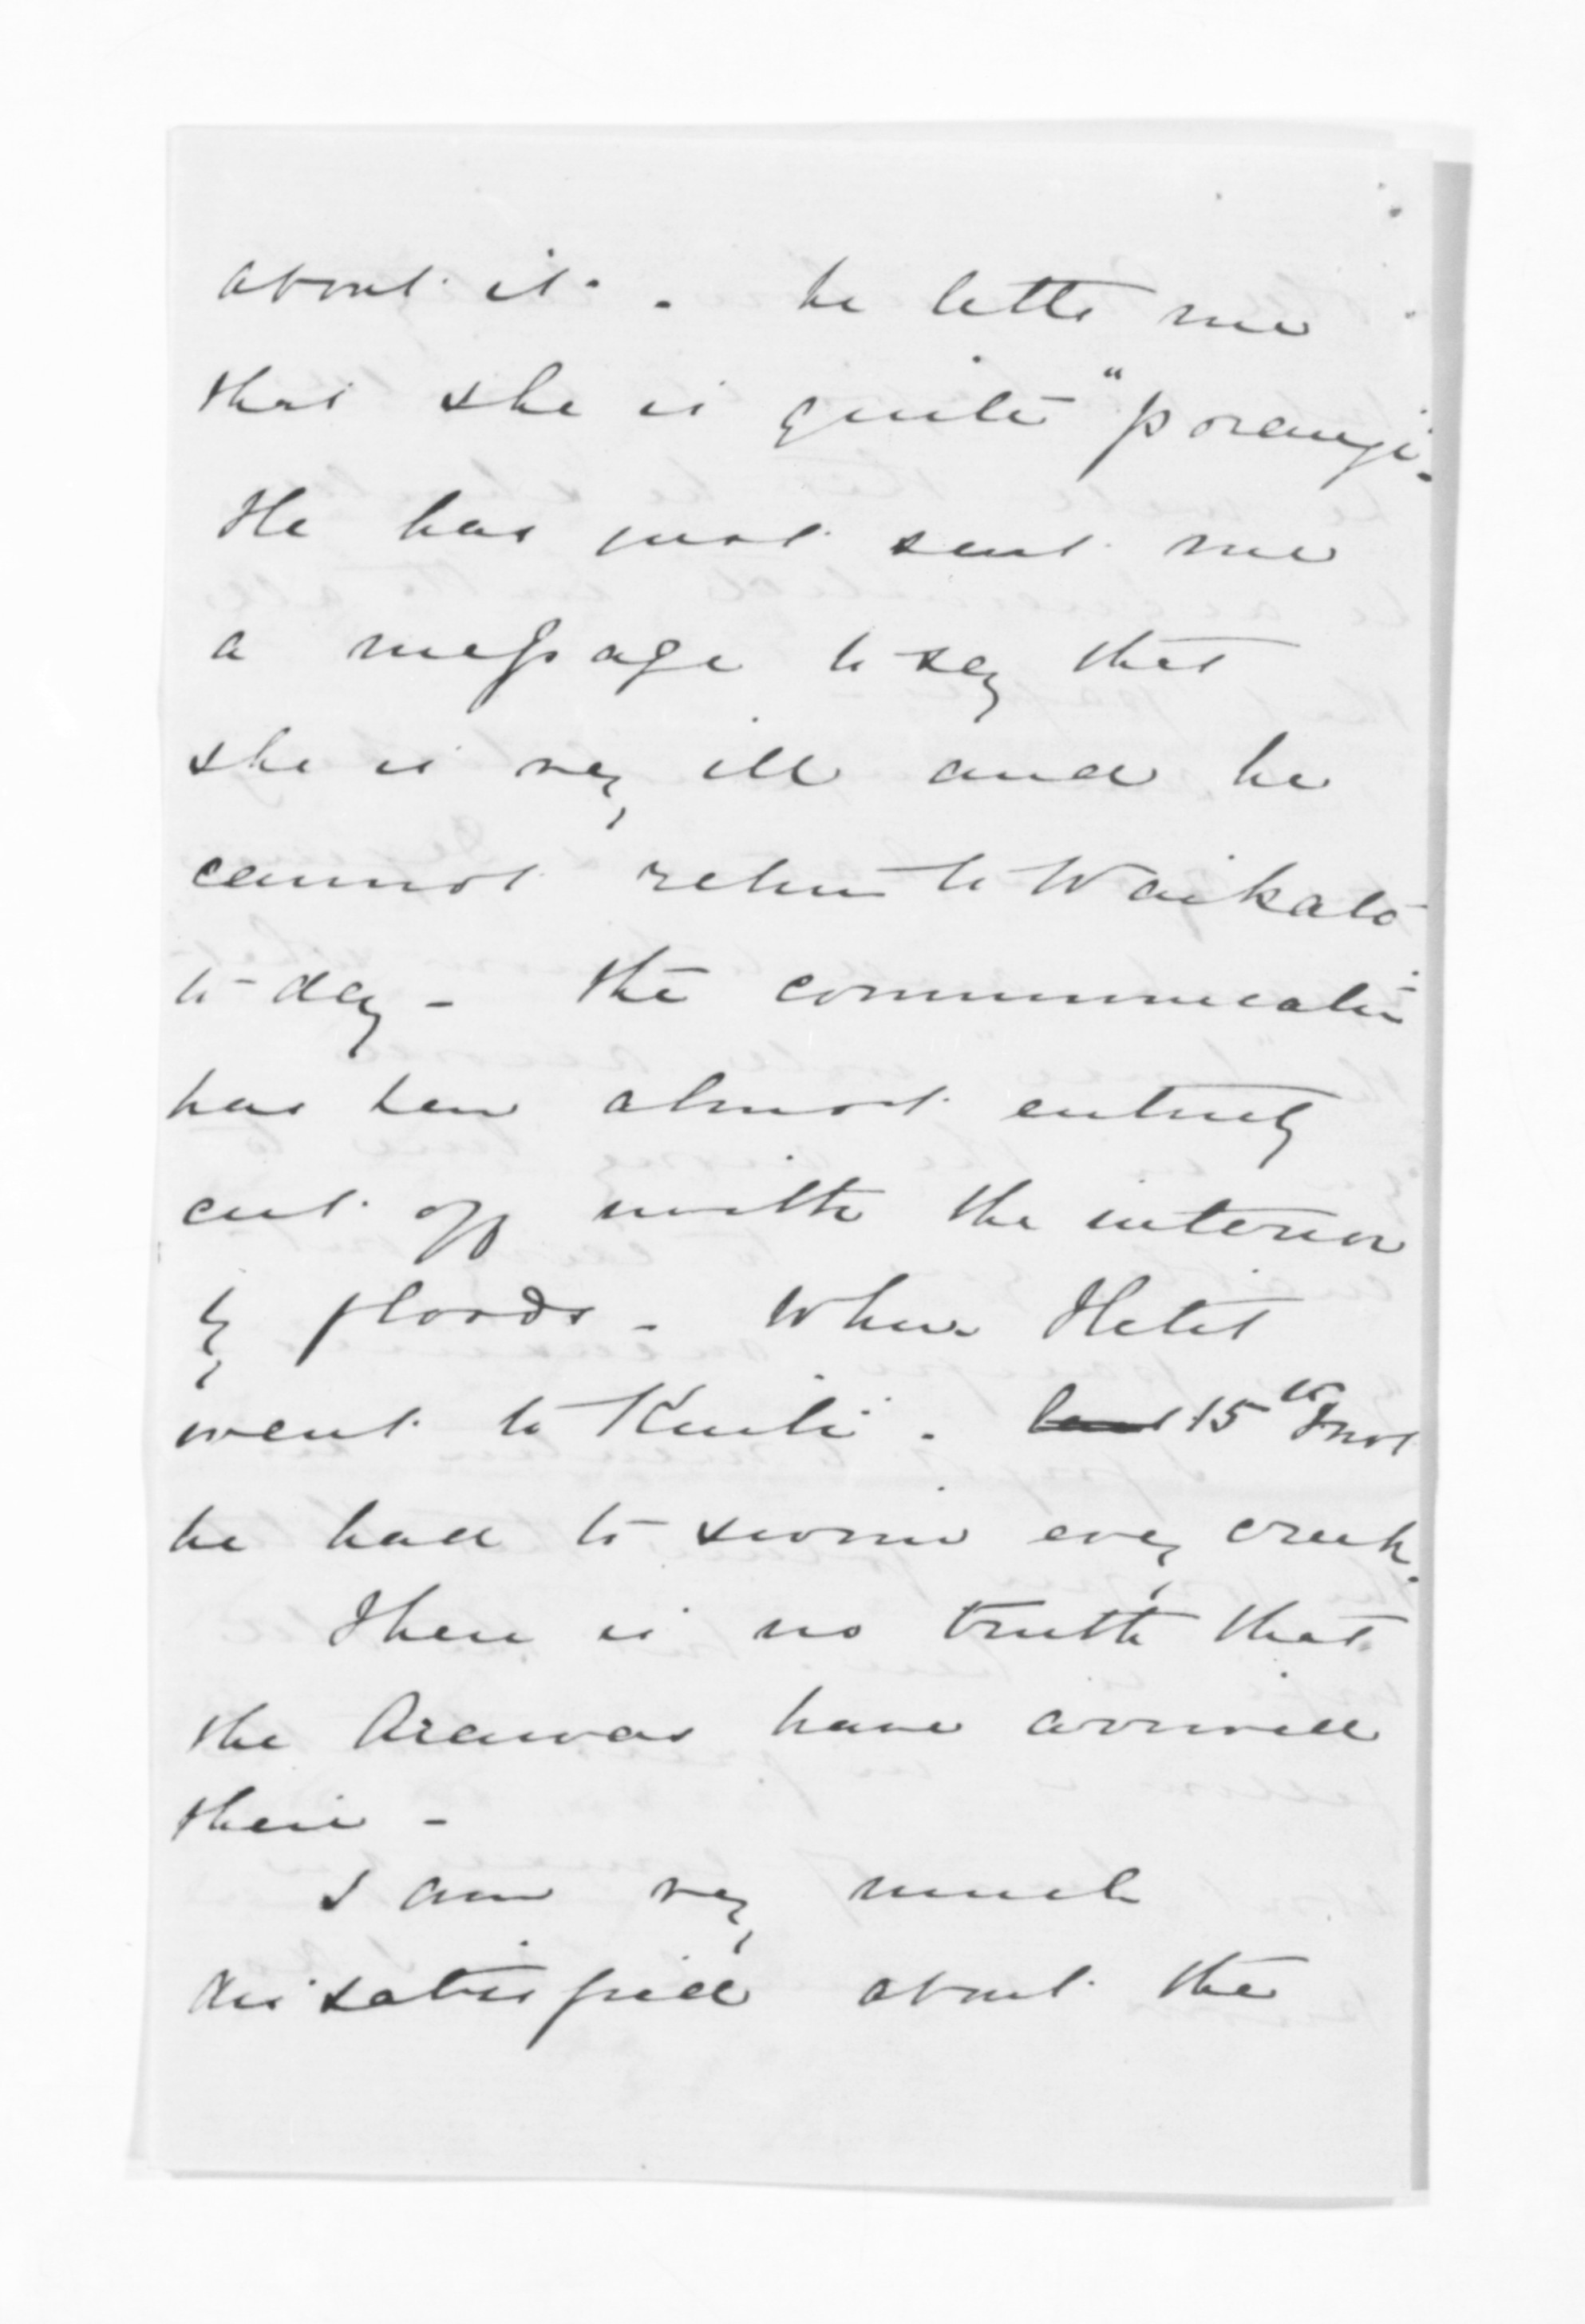 about it. he tells me
that she is quite "porangi.
He has just sent me
a message to say that
she is very ill and he
cannot return to Waikato
to-day - the communication
has been almost entirely
cut off with the interior
by floods - When Hetit
went to Kuiti. 15th Inst
he had to swim every creek.
There is no truth that
the Arawas have arrived
there -
I am very much
dissatisfied about the